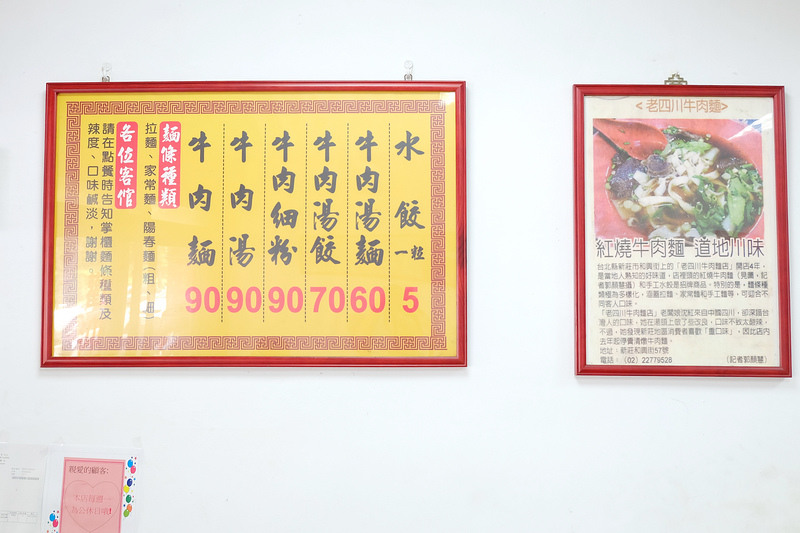 水餃一粒 5
牛肉湯麵 60
牛肉湯餃 70
牛肉細粉 90
牛肉湯 90
牛肉麵 90
麵條種類
拉麵、家常麵、陽春麵(粗、細)
各位客倌
請在點餐時告知掌櫃麵條種類及
辣度、口味鹹淡，謝謝。
<老四川牛肉麵>
紅燒牛肉麵 道地川味
台北縣新莊市和興街上的「老四川牛肉麵店」開店4年，
是當地人熟知的好味道。店裡頭的紅燒牛肉麵（見圖，記
者郭顏慧攝）和手工水餃是招牌商品。特別的是，麵條種
類極為多樣化，涵蓋拉麵、家常麵和手工麵等，可迎合不
同客人口味。
「老四川牛肉麵店」老闆娘沈紅來自中國四川，卻深諳台
灣人的口味。她在湯頭上做了些改良，口味不致太麻辣。
不過，她發現新莊地區消費者喜歡「重口味」，因此店內
去年起停賣清燉牛肉麵。
地址：新莊和興街57號
電話：（02）22779528
（記者郭顏慧）
親愛的顧客:
本店每週一
為公休日哦!